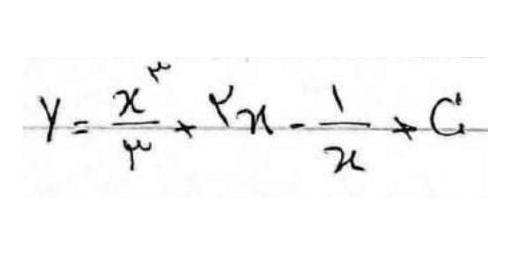 y = x^۳/۳ + ۲x - ۱/x + C